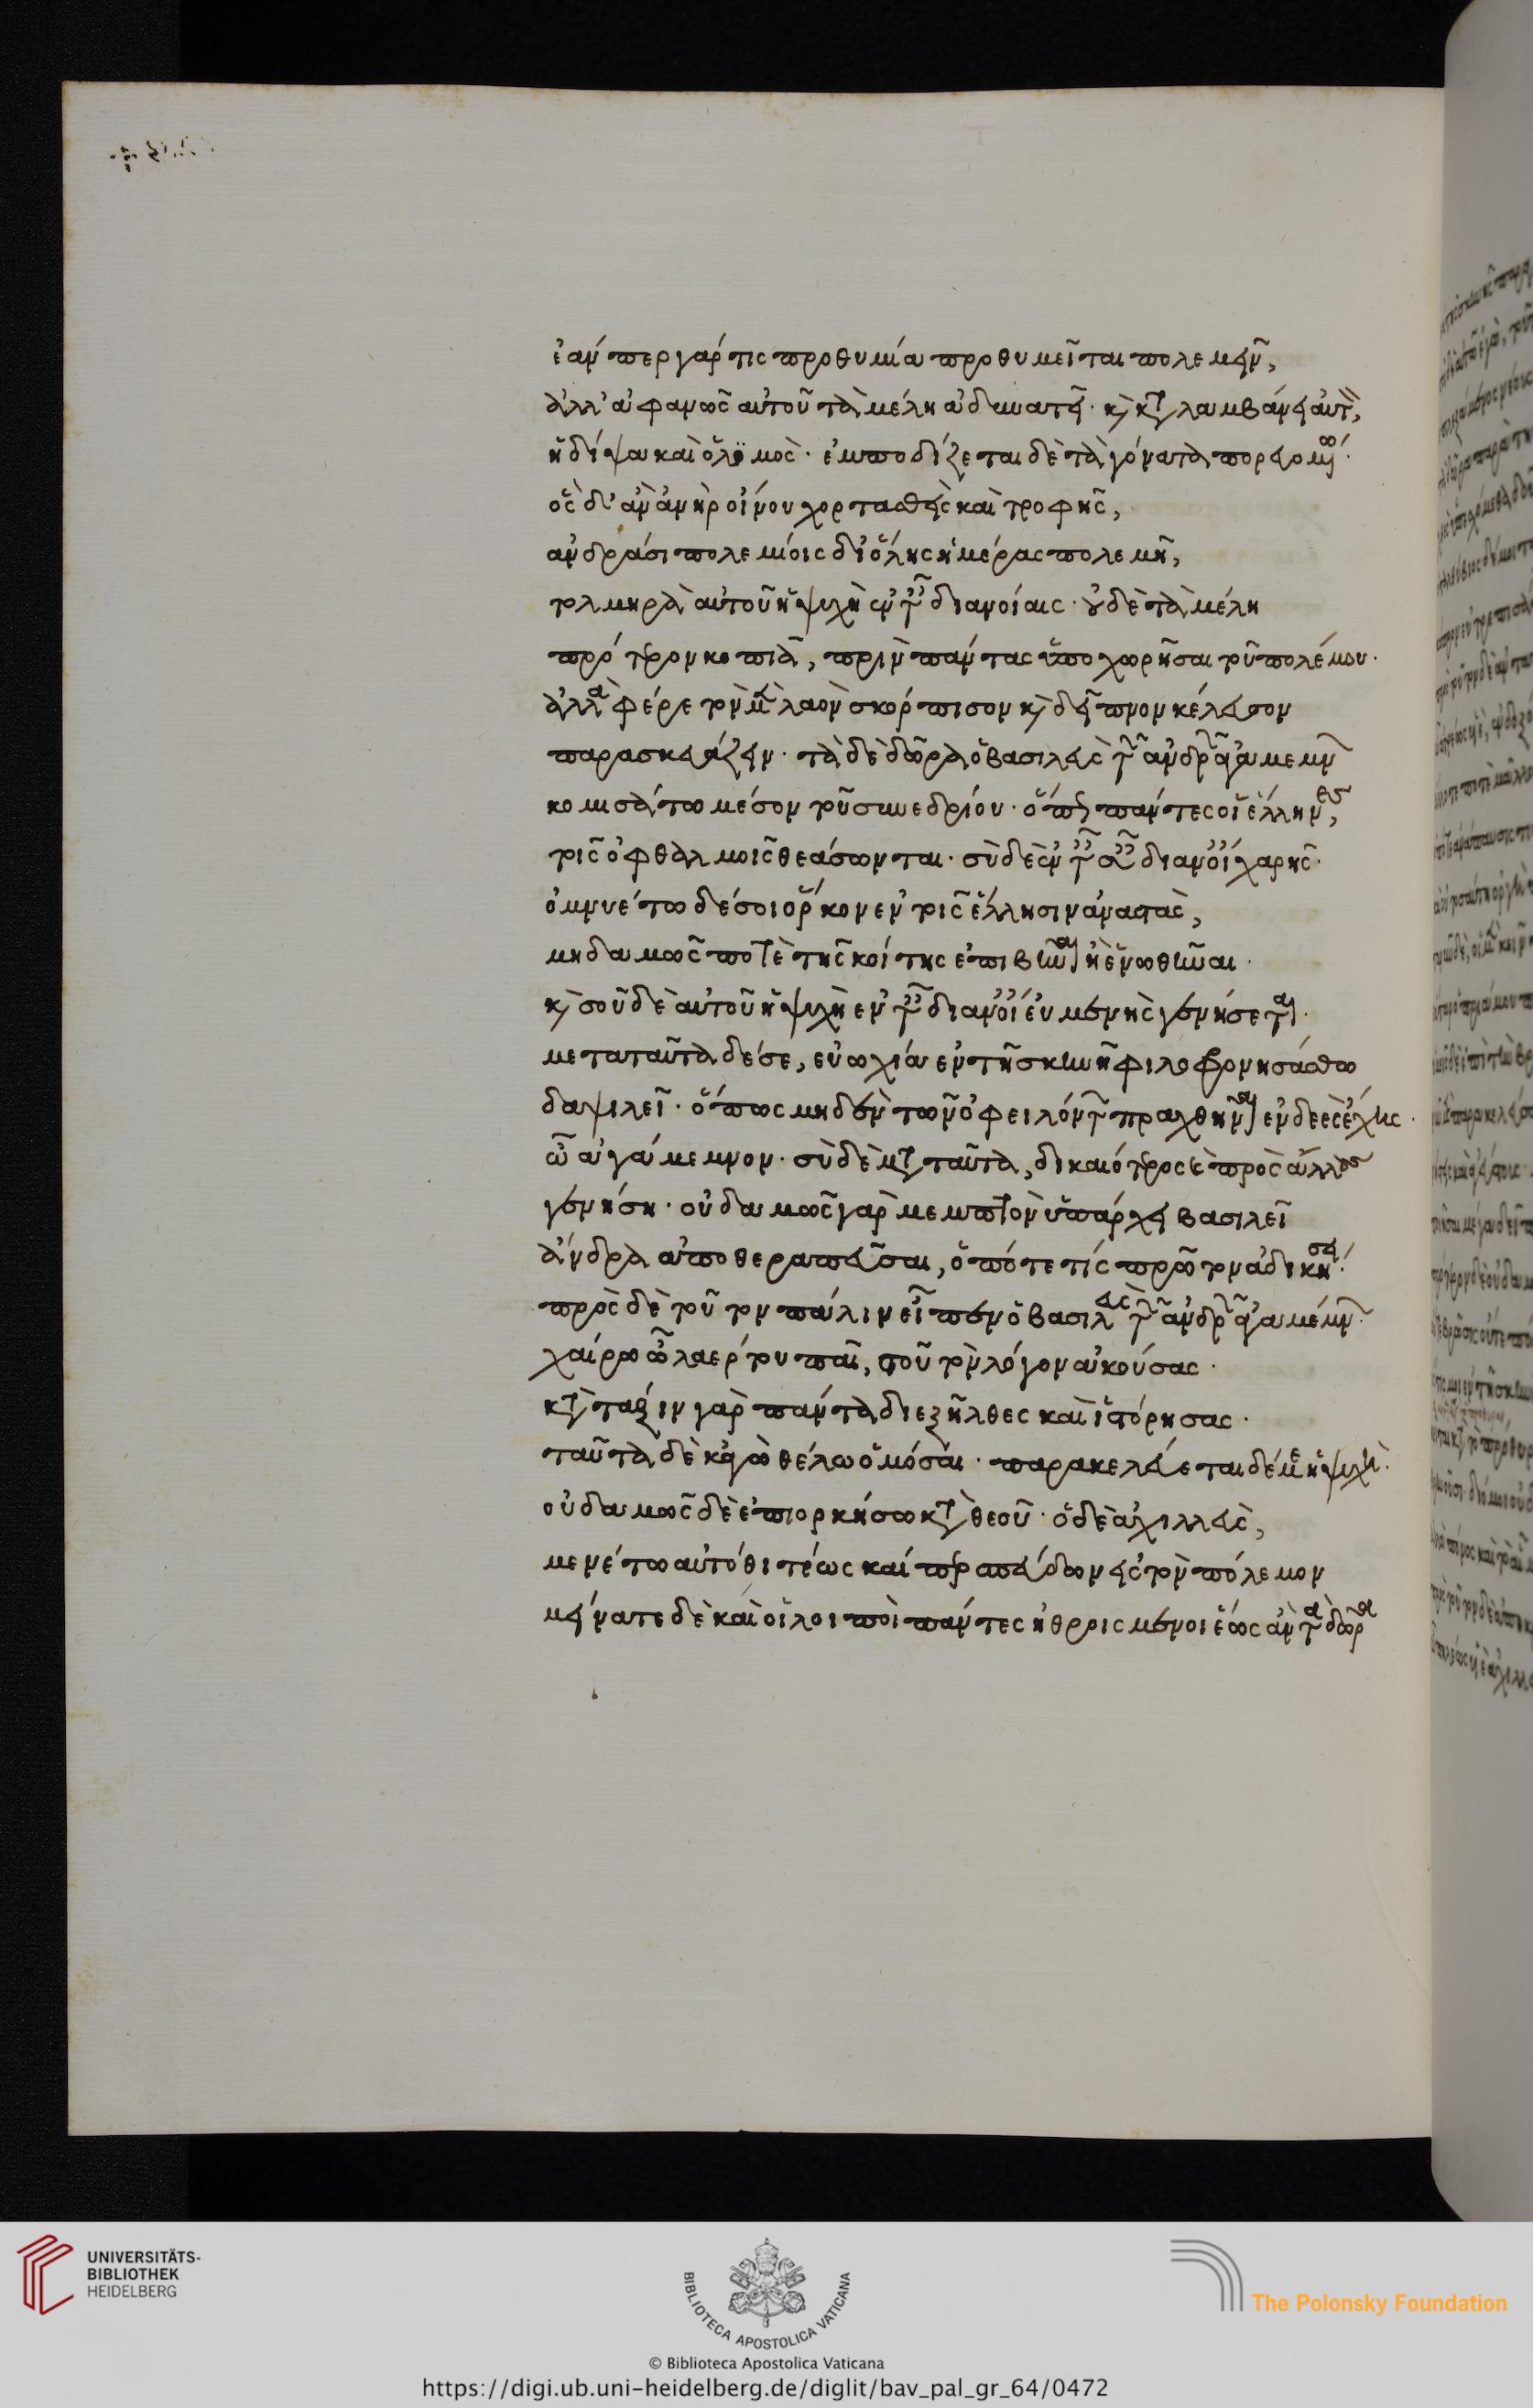 ἐάνπερ γάρ τις προθυμία προθυμεῖται πολεμεῖν,
ἀλλ' ἀφανῶς αὐτοῦ τὰ μέλη ἀδυνατεῖ· κ καταλαμβάνει αὐτὸν,
ἡ δίψα καὶ ὁ λοιμός· ἐμποδίζεται δὲ τὰ γόνατα πορευομένου·
ὃς δ' ἂν ἀνὴρ οἴνου χορτασθεὶς καὶ τροφῆς,
ἀνδράσι πολεμίοις δι' ὅλης ἡμέρας πολεμῆ,
τολμηρὰ αὐτοῦ ἡ ψυχὴ ἐν τοῖς διανοίαις· οὐδὲ τὰ μέλη
πρότερον κοπιᾶ, πρὶν πάντας ὑποχωρῆσαι τοῦ πολέμου·
ἀλλὰ φέρε τὸν μὲν λαὸν σκόρπισον κ δεῖπνον κέλευσον
παρασκευάζειν· τὰ δὲ δῶρα ὁ βασιλεὺς τῶν ἀνδρῶν ἀγαμέμνων
κομισάτω μέσον τοῦ συνεδρίου· ὅπως πάντες οἱ ἕλληνες,
τοῖς ὀφθαλμοῖς θεάσωνται· σὺ δὲ ἐν ταῖς σαῖς διανοίαις χαρῆς·
ὀμνυέτω δέ σοι ὅρκον ἐν τοῖς ἕλλησιν ἀναστὰς,
μηδαμῶς ποτὲ τῆς κοίτης ἐπιβῆναι ἢ ἑνωθῆναι·
κ σοῦ δὲ αὐτοῦ ἡ ψυχὴ ἐν ταῖς διανοίαις εὐμενὴς γενήσεται·
μετὰ ταῦτα δέ σε, εὐωχία ἐν τῆ σκηνῆ φιλοφρονησάσθω
δαψιλεῖ· ὅπως μηδὲν τῶν ὀφειλόντων πραχθῆναι ἐνδεὲς ἔχης·
ὦ ἀγάμεμνον· σὺ δὲ μετὰ ταῦτα, δικαιότερος κ πρὸς ἄλλους
γενήση· οὐδαμῶς γὰρ μεμπτὸν ὑπάρχει βασιλεῖ
ἄνδρα ἀποθεραπεῦσαι, ὁπότε τίς πρῶτον ἀδικήσει·
πρὸς δὲ τοῦτον πάλιν εἶπεν ὁ βασιλεὺς τῶν ἀνδρῶν ἀγαμέμνων·
χαίρω ὦ λαέρτου παῖ, σοῦ τὸν λόγον ἀκούσας·
κατὰ τάξιν γὰρ πάντα διεξῆλθες καὶ ἱστόρησας·
ταῦτα δὲ κἀγὼ θέλω ὀμόσαι· παρακελεύεται δέ με ἡ ψυχή·
οὐδαμῶς δὲ ἐπιορκήσω κατὰ θεοῦ· ὁ δὲ ἀχιλλεὺς,
μενέτω αὐτόθι τέως καί περ σπεύδων εἰς τὸν πόλεμον
μείνατε δὲ καὶ οἱ λοιποὶ πάντες ἠθροισμένοι ἕως ἂν τὰ δῶρα
UNIVERSITÄTS-
BIBLIOTHEK
HEIDELBERG
BIBLIOTECA APOSTOLICA VATICANA
The Polonsky Foundation
© Biblioteca Apostolica Vaticana
https://digi.ub.uni-heidelberg.de/diglit/bav_pal_gr_64/0472